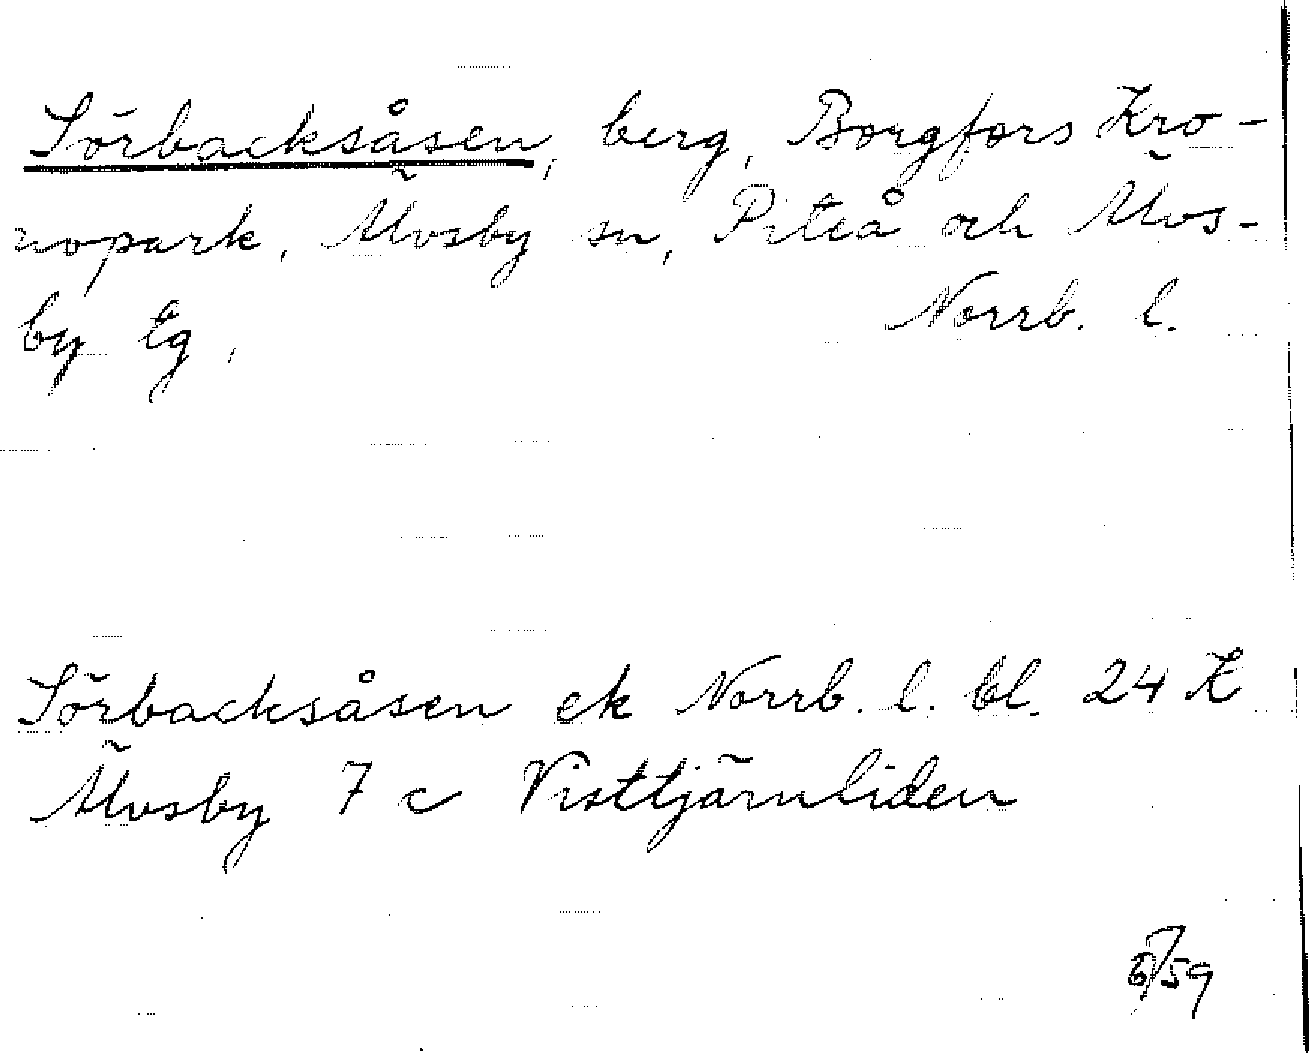 Sörbacksåsen, berg, Borgfors Kro-
nopark, Älvsby sn, Piteå och Älvs-
by tg, Norrb. l.
Sörbacksåsen ek Norrb. l. bl. 24 K
Älvsby 7 c Visttjärnliden
/59